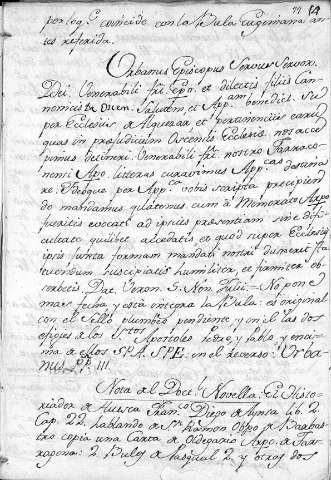 77 14
por lo q.e coincide con la Bula Eugeniana an
tes referida.
Urbanus Episcopus Servus Servor.
Dei. Venerabili fri. Epo. et dilectis filiis Ca
nonicis Oscen. Salutem et App.am benedict.
per Ecclesiis de Alquezar et pertinenciis earu
quas in præjudicium Oscensis Ecclesiæ notar ac
cepimus detineri Venerabili fri. nostro Tarraco
nensi Apo. litteras curavimus App.cas destina
re. Ideoque per App.ca vobis scripta precipien
do mandamus, quatenus cum à Memorato Arpo.
fueritis evocati ad ipsius presentiam sine dif
cultate qualibet accedatis et quod super Ecclesiis
ipsis juxta formam mandati nostri duxerit sta
tuendum suscipiatis humiliter, et firmiter ob
servetis. Dat. Veron. 5. Non. Julii = No pon e
mas fecha, y está integra la Bula: es original
con el Sello plumbeo pendiente, y en él las dos
efigies de los S.tos Apostoles Pedro, y Pablo, y enci
ma de ellos SPA. SPE. en el reverso: Urba
nus PP. III.
Nota del Doct.l Novella: El Histo
riador de Huesca Fran.co Diego de Aynsa lib. 2.
Cap. 22. hablando de S.n Ramon Obpo. de Barbas
tro copia una Carta de Oldegario Arpo. de Tar
ragona: 2. Bulas de Pasqual 2. y otras dos